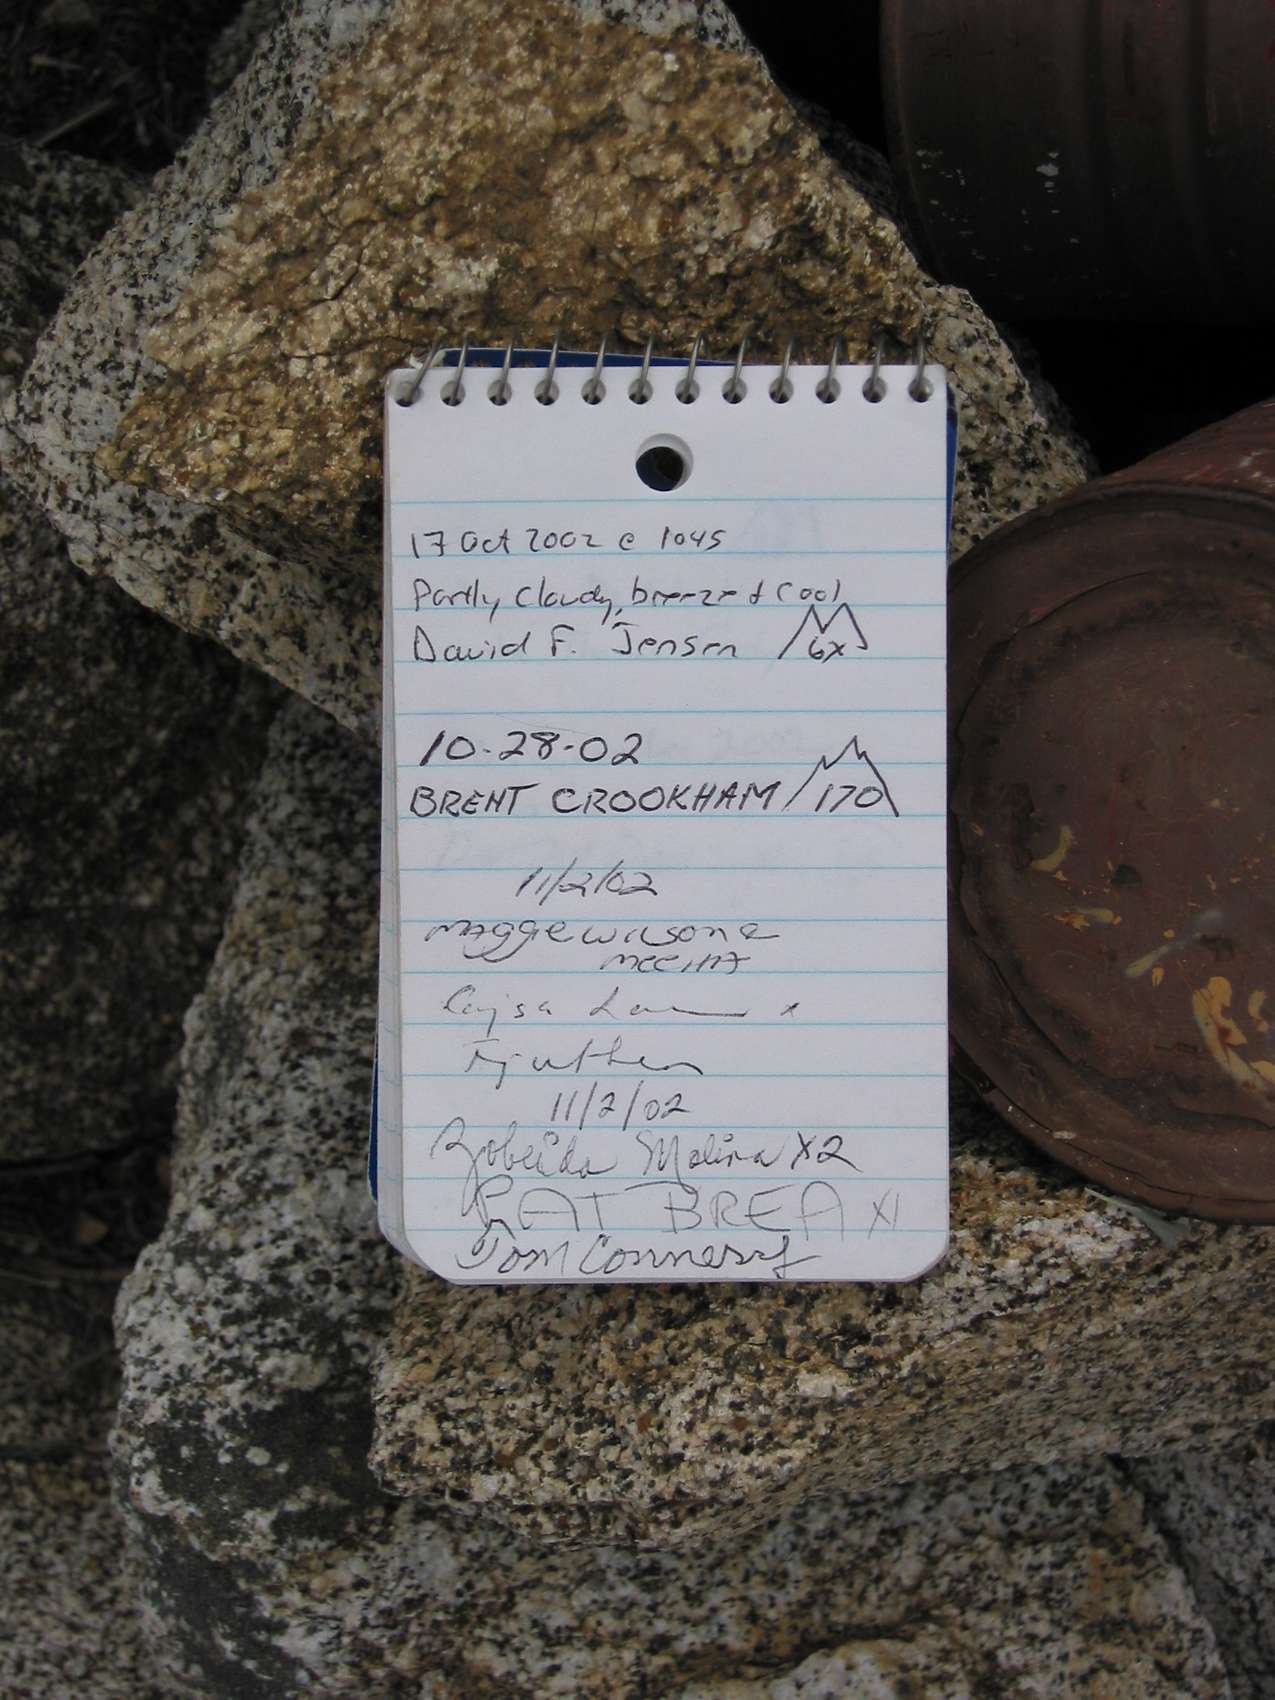 17 Oct 2002 @ 1045
Partly cloudy, breeze & cool
David F. Jensen 6x
10-28-02
BRENT CROOKHAM 170
11/2/02
Maggie Wilson
11/2/02
Zobeida Molina X2
PAT BREA X1
Tom Connery